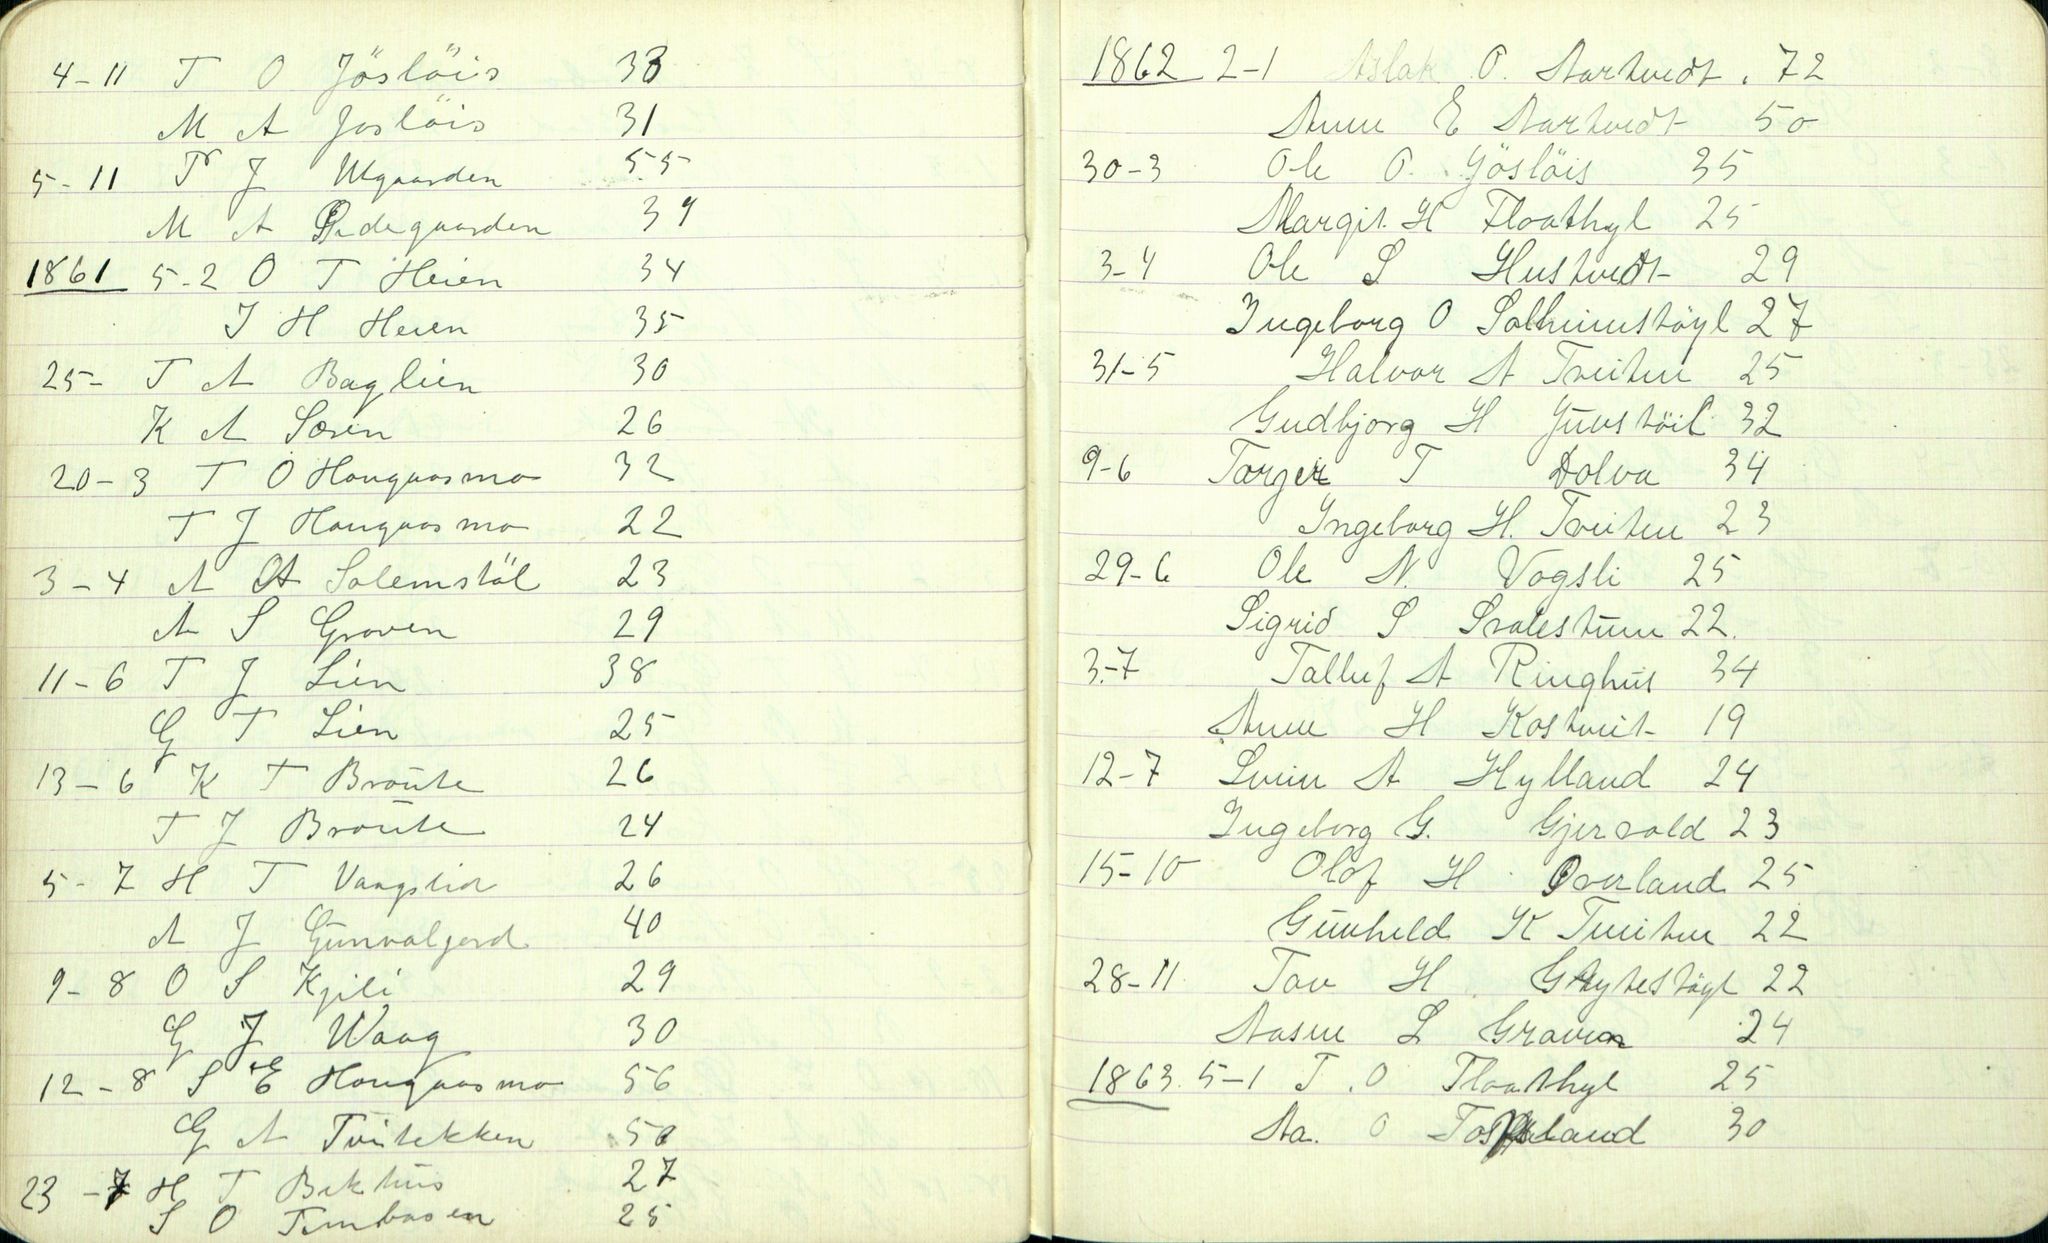 4-11 T O Jöslöis 33
M A Josløis 31
5-11 T J Utgaarden 55
M A Ødegaarden 39
1861 5-2 O T Heien 34
I H Heien 35
25- T A Baglien 30
K A Søren 26
20-3 T O Haugaasmo 32
T J Haugaasmo 22
3-4 A A Solemstöl 23
A S Groven 29
11-6 T J Lien 38
G T Lien 25
13-6 K T Broute 26
T J Broute 24
5-7 H T Vaagslid 26
A J Gunvaljord 40
9-8 O S Kjili 29
G J Waag 30
12-8 S E Haugaasmo 56
G A Tveitekken 50
23-7 H T Bekhus 27
S O 25
1862 2-1 Aslak O. Aartvedt. 72
Anne E Aartvedt 50
30-3 Ole O. Jösløis 35
Margit H Flaathyl 25
3-4 Ole S Hustvedt 29
Ingeborg O Solheimstöyl 27
31-5 Halvor A Tveiten 25
Gudbjorg H Juvstöil 32
9-6 Tarjer T Dolva 34
Ingeborg H. Tveiten 23
29-6 Ole N. Vogsli 25
Sigrid S Svalestuen 22.
3-7 Tallef A Ringhus 34
Anne H Kostveit 19
12-7 Svein A Hylland 24
Ingeborg G. Gjervold 23
15-10 Olof H Overland 25
Gunheld K Tveiten 22
28-11 Tov H Grytestöyl 22
Aasne L Graven 24
1863. 5-1 T. O Flaathyl 25
Aa. O 30